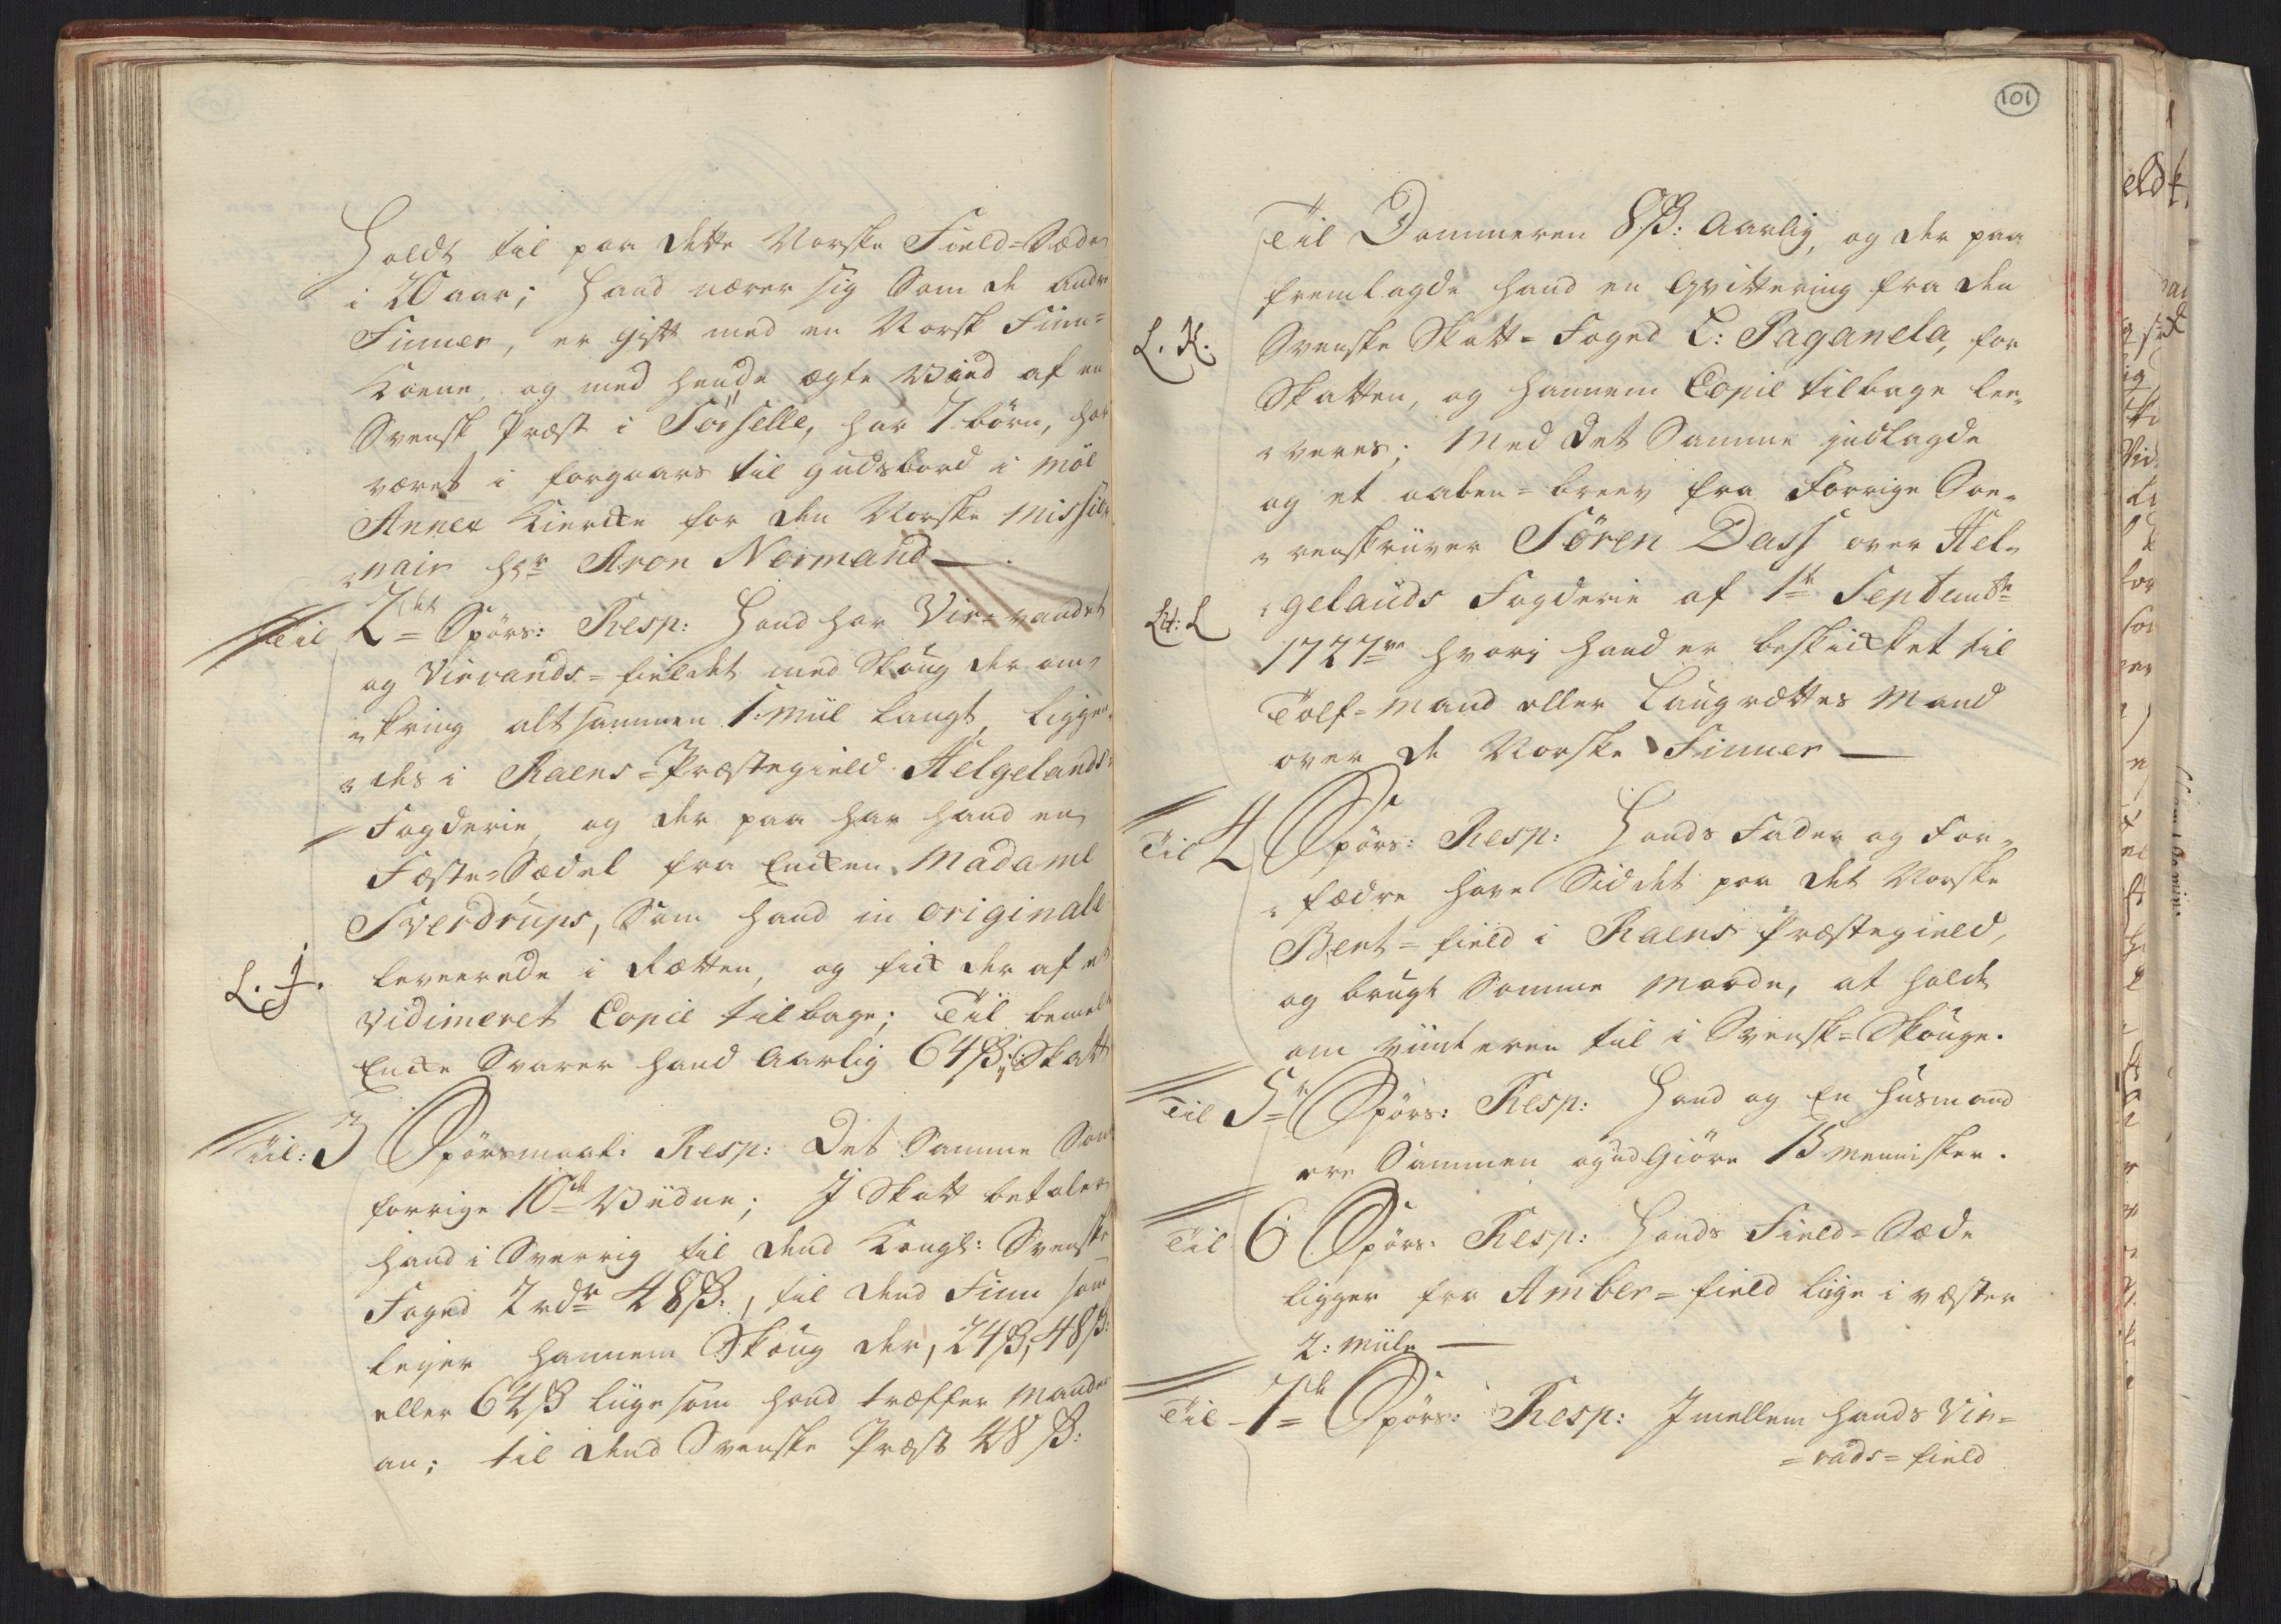 Holdt til paa dette Norske Field=Sæde
i 20 aar; Hand nærer sig Som de andre
Finner, er gift med en Norsk Finn=
Koene, og med hende ægte Viid af en
Svensk Præst i Sorselle, har 7 börn, har
været i forgaars til gudsbord i Möe
Annex Kiercke for den Norske Missio-
nair Hr Aron Normand —.
Til 2det Spörs: Resp: Hand har Vir=vandet
og Virvands=fieldet med Skoug der om-
kring altsammen 1: Miil langt, liggen-
des i Raens=Præstegield Helgelands
Fogderie, og der paa har hand en
Fæste=Sædel fra Encken Madame
Sverdrups, Som hand in originale
L. J. leveerede i Rætten, og fick der af et
Vidimeret Copie tilbage; Til bemelt
Encke Svarer hand Aarlig 64 ß: Skatt
Til: 3 Spörsmaal: Resp: Det Samme Som
forrige 10de Viidne; I Skatt betaler
hand i Sverrig til dend Kongl: Svenske
Foged 2 rdr 48 ß:, til dend Finn som
leyer hannem Skoug der, 24 ß, 48 ß:
eller 64 ß liige som hand træffer Manden
an; til dend Svenske Præst 48 ß:
101
Til Dommeren 8 ß: Aarlig, og der paa
fremlagde hand en Qvittering fra den
L. K. Svenske Skatt=Foged C: Paganela, for
Skatten, og hannem Copie tilbage lee-
veres; Med det Samme indlagde
og et aaben=breev fra Forrige Soe-
renskriiver Sören Dass over Hel-
Lit: L gelands Fogderie af 1te Septembr
1727ve hvori hand er beskicket til
Tolf=Mand eller Laugrættes Mand
over de Norske Finner —
Til 4 Spörs: Resp: Hands Fader og For-
fædre have Siddet paa det Norske
Bent=field i Raens Præstegield,
og brugt Samme Maade, at holdt
om viinteren til i Svensk=Skouge.
Til 5te Spörs: Resp: Hand og En Huusmand
ere Sammen og udgiöre 15 Mennisker.
Til 6 Spörs: Resp: Hands Field=Sæde
ligger fra Amber=field liige i væster
2: Miile —
Til 7de Spörs: Resp: Imellem hands Vir=
=vads=field